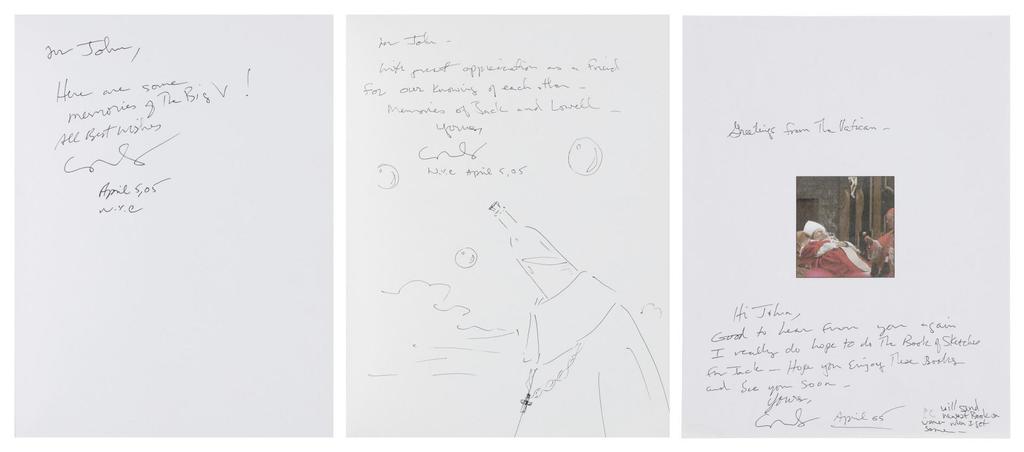 for John,
Here are some
memories of The Big V!
All Best Wishes
April 5, 05
N.Y.C
for John -
With great appreciation as a friend
For our knowing of each other -
Memories of Jack and Lowell -
Yours,
N.Y.C April 5, 05
Greetings from The Vatican -
Hi John,
Good to hear from you again
I really do hope to do The Book of Sketches
For Jack - Hope you Enjoy These Books
and See you soon -
Yours,
April 05
will send
newest Book on
when I get
some -